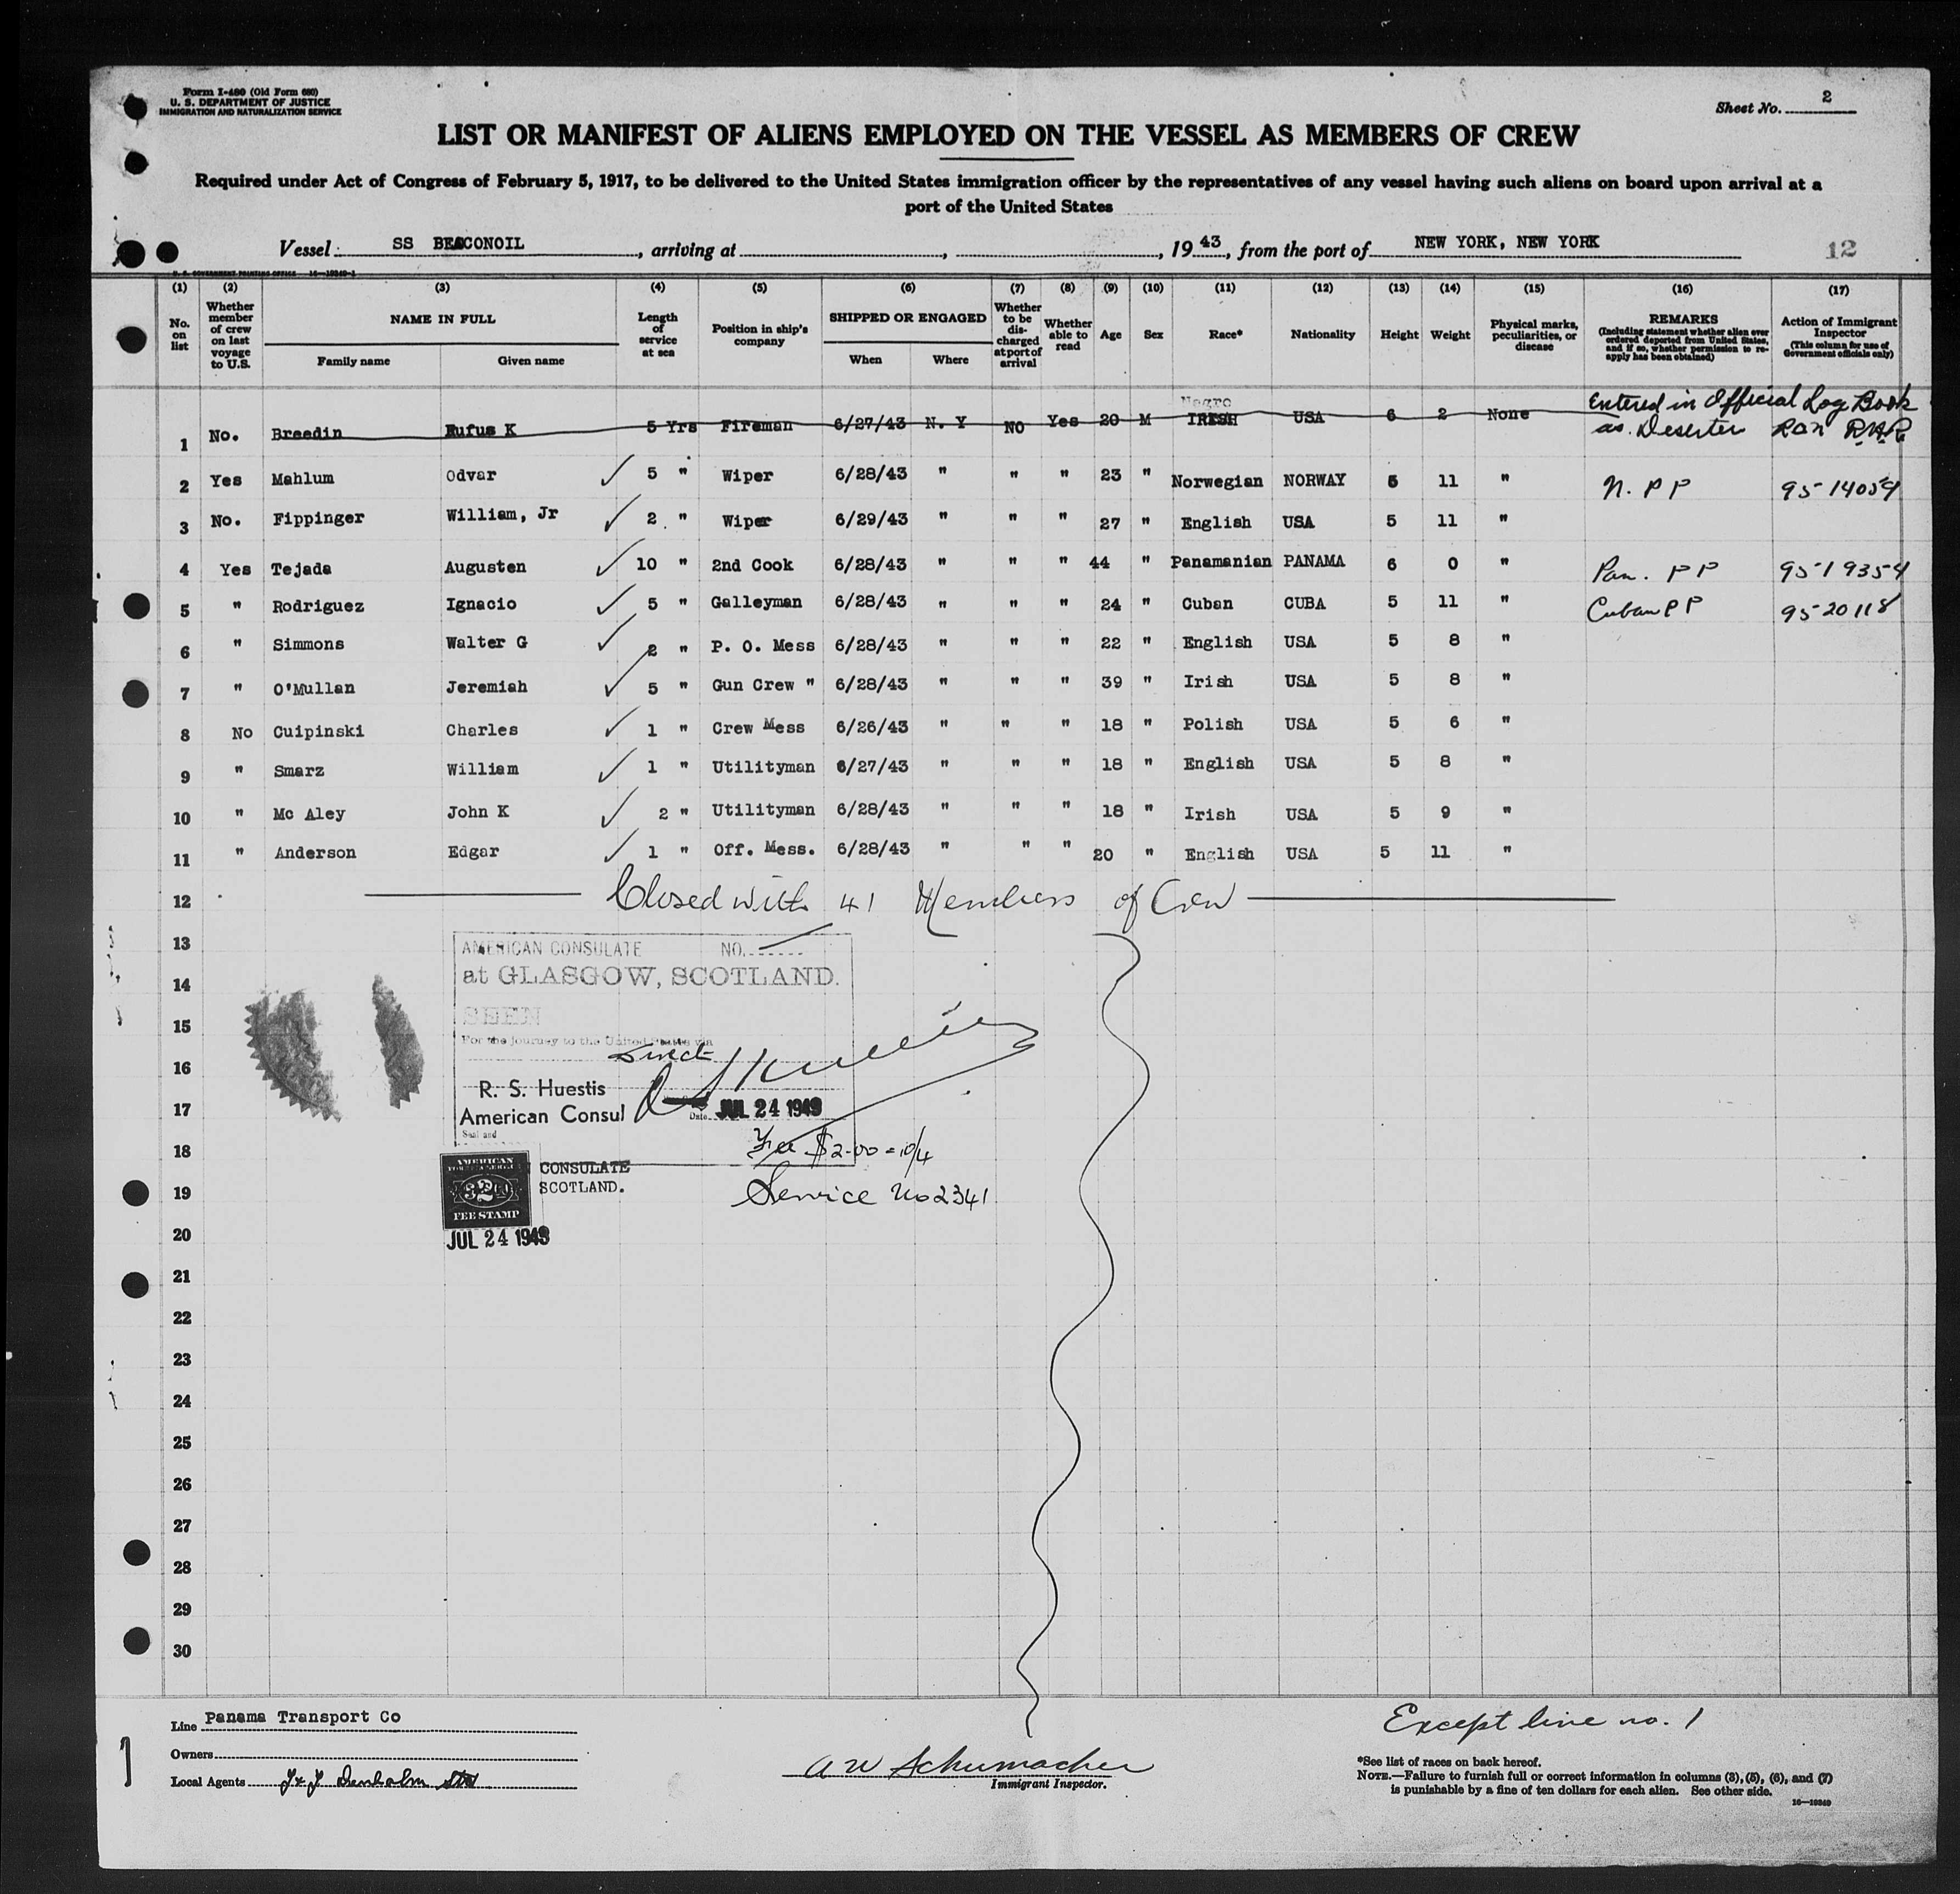 Form I-480 (Old Form 680)
U. S. DEPARTMENT OF JUSTICE
IMMIGRATION AND NATURALIZATION SERVICE
Sheet No. 2
LIST OR MANIFEST OF ALIENS EMPLOYED ON THE VESSEL AS MEMBERS OF CREW
Required under Act of Congress of February 5, 1917, to be delivered to the United States immigration officer by the representatives of any vessel having such aliens on board upon arrival at a
port of the United States
Vessel SS BEACONOIL, arriving at , , 19 43, from the port of NEW YORK, NEW YORK
12
U. S. GOVERNMENT PRINTING OFFICE 16-19249-1
(1) (2) (3) (4) (5) (6) (7) (8) (9) (10) (11) (12) (13) (14) (15) (16) (17)
No. on list | Whether member of crew on last voyage to U.S. | NAME IN FULL | Family name | Given name | Length of service at sea | Position in ship's company | SHIPPED OR ENGAGED | When | Where | Whether to be discharged at port of arrival | Whether able to read | Age | Sex | Race* | Nationality | Height | Weight | Physical marks, peculiarities, or disease | REMARKS (Including statement whether alien ever ordered deported from United States, and if so, whether permission to reapply has been obtained) | Action of Immigrant Inspector (This column for use of Government officials only)
1 No. Breedin Rufus K 5 Yrs Fireman 6/27/43 N. Y NO Yes 20 M Negro IRISH USA 6 2 None Entered in Official Log Book as Deserter
2 Yes Mahlum Odvar 5 " Wiper 6/28/43 " " " 23 " Norwegian NORWAY 5 11 " N. PP 95-14054
3 No. Fippinger William, Jr 2 " Wiper 6/29/43 " " " 27 " English USA 5 11 "
4 Yes Tejada Augusten 10 " 2nd Cook 6/28/43 " " " 44 " Panamanian PANAMA 6 0 " Pan. PP 95-19354
5 " Rodriguez Ignacio 5 " Galleyman 6/28/43 " " " 24 " Cuban CUBA 5 11 " Cuban PP 95-20118
6 " Simmons Walter G 2 " P. O. Mess 6/28/43 " " " 22 " English USA 5 8 "
7 " O'Mullan Jeremiah 5 " Gun Crew " 6/28/43 " " " 39 " Irish USA 5 8 "
8 No Cuipinski Charles 1 " Crew Mess 6/26/43 " " " 18 " Polish USA 5 6 "
9 " Smarz William 1 " Utilityman 6/27/43 " " " 18 " English USA 5 8 "
10 " Mc Aley John K 2 " Utilityman 6/28/43 " " " 18 " Irish USA 5 9 "
11 " Anderson Edgar 1 " Off. Mess. 6/28/43 " " " 20 " English USA 5 11 "
12 Closed with 41 Members of Crew
13
AMERICAN CONSULATE NO.
at GLASGOW, SCOTLAND.
14
SEEN
15
For the journey to the United States via
direct
16
R. S. Huestis
17
American Consul Date JUL 24 1943
Seal and
18
Fee $2.00 = 10/4
AMERICAN
CONSULATE
19
SCOTLAND.
FEE STAMP
Service No 2341
20
JUL 24 1943
21
22
23
24
25
26
27
28
29
30
Line Panama Transport Co
Except line no. 1
Owners
Local Agents J & J Denholm Ltd
A W Schumacher
Immigrant Inspector.
*See list of races on back hereof.
NOTE.—Failure to furnish full or correct information in columns (3), (5), (6), and (7)
is punishable by a fine of ten dollars for each alien. See other side.
16—19249